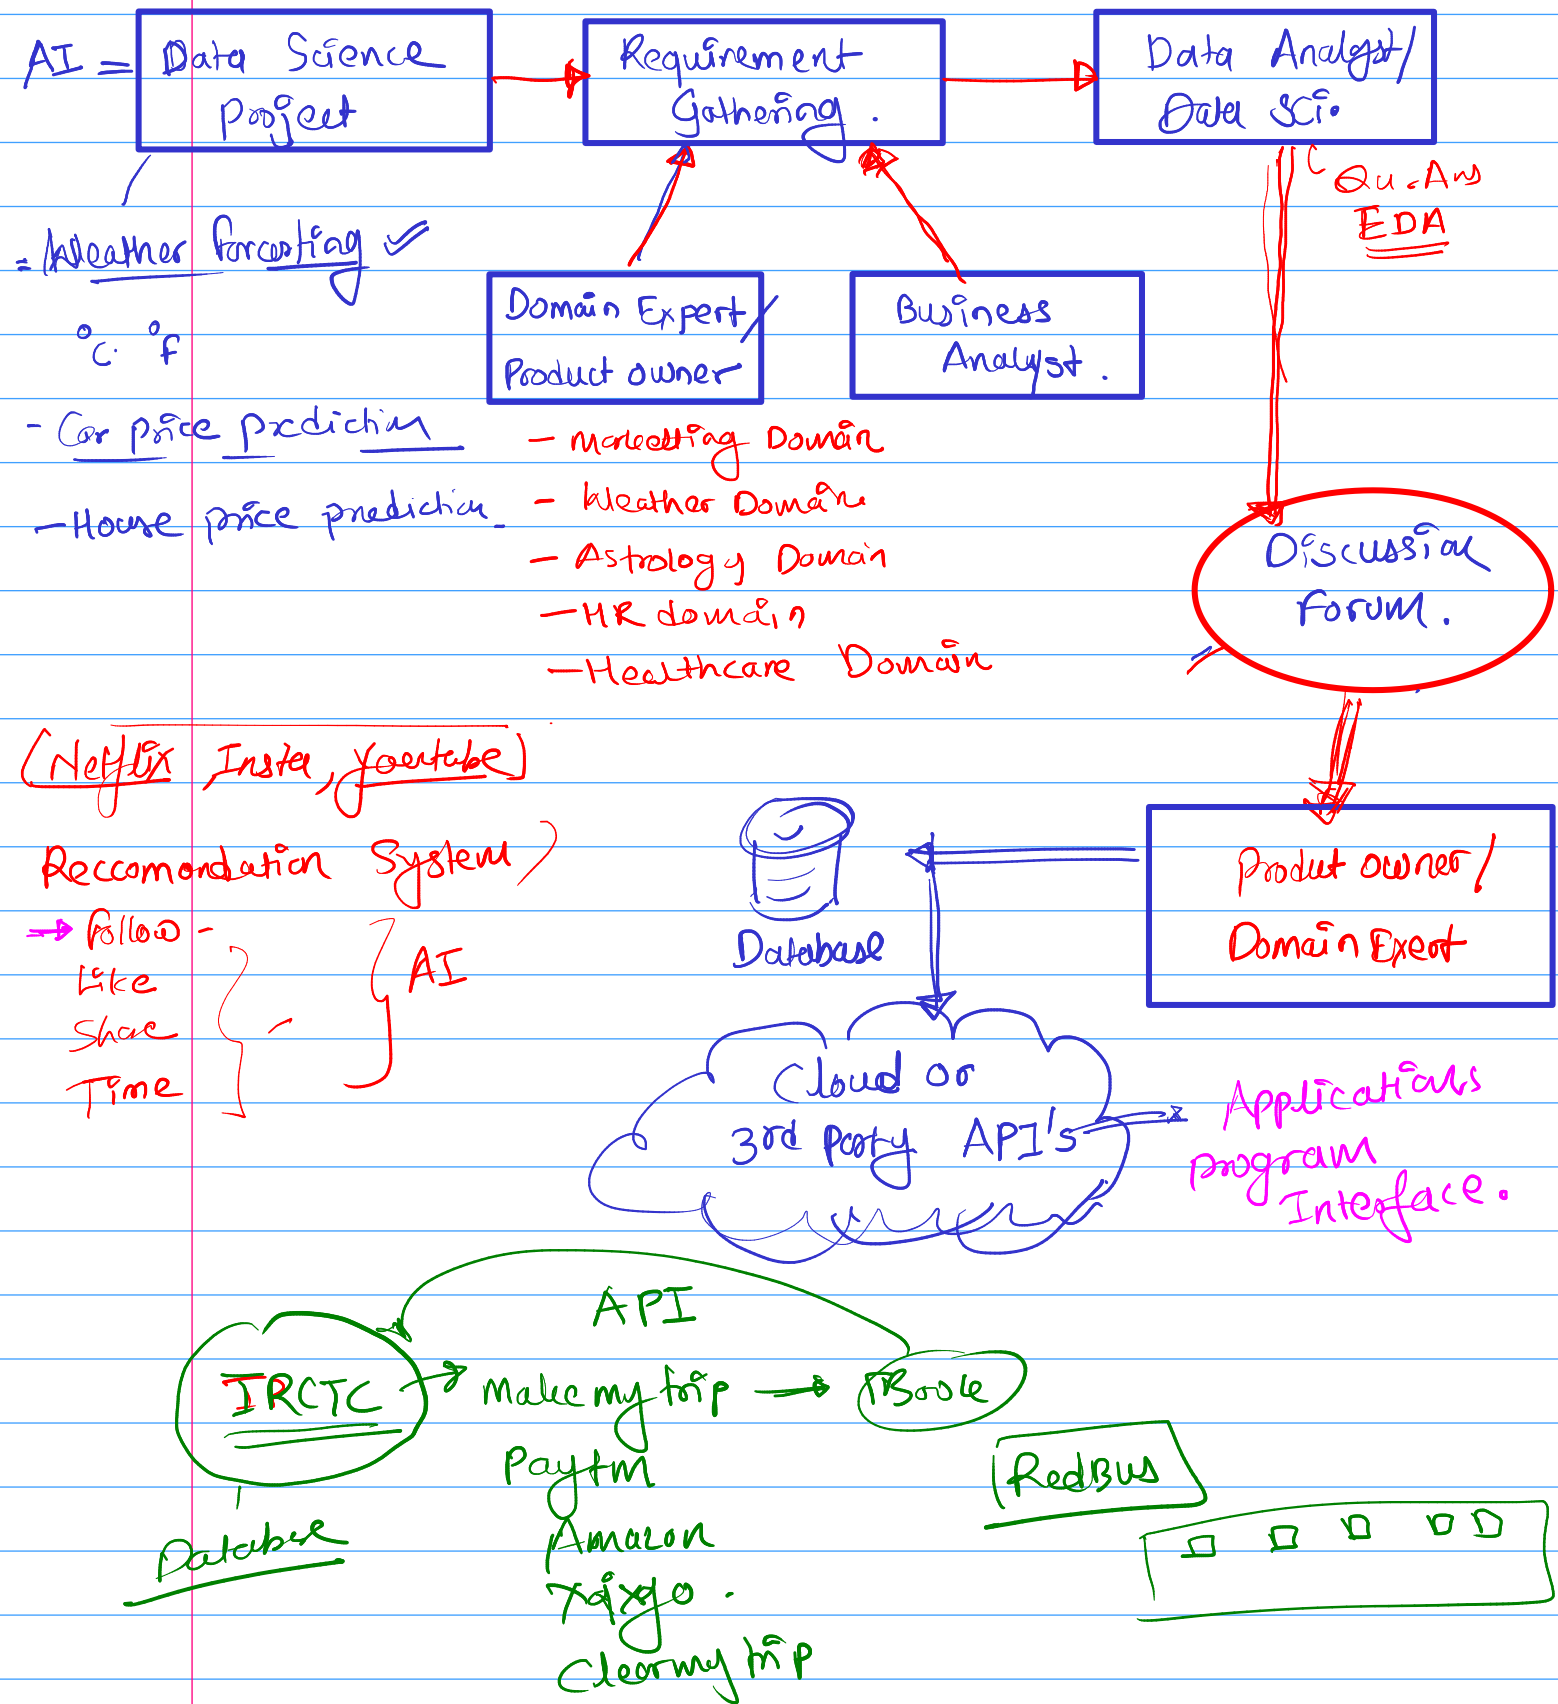 AI = Data Science Project
Requirement Gathering.
Data Analyst/ Data Sci.
Qu. Ans
EDA
= Weather forcasting
°C. °F
- Car price prediction
- House price prediction
Domain Expert/
Product owner
Business
Analyst.
- Marketting Domain
- Weather Domain
- Astrology Domain
- HR domain
- Healthcare Domain
Discussion
Forum.
(Netflix, Insta, youtube)
Reccomondation System
follow -
Like
Share
Time
AI
Produt owner/
Domain Exert
Database
Cloud or
3rd Party API's
Applications
program
Interface.
API
IRCTC
Make my trip
Book
Paytm
Amazon
Clearmytrip
Database
RedBus